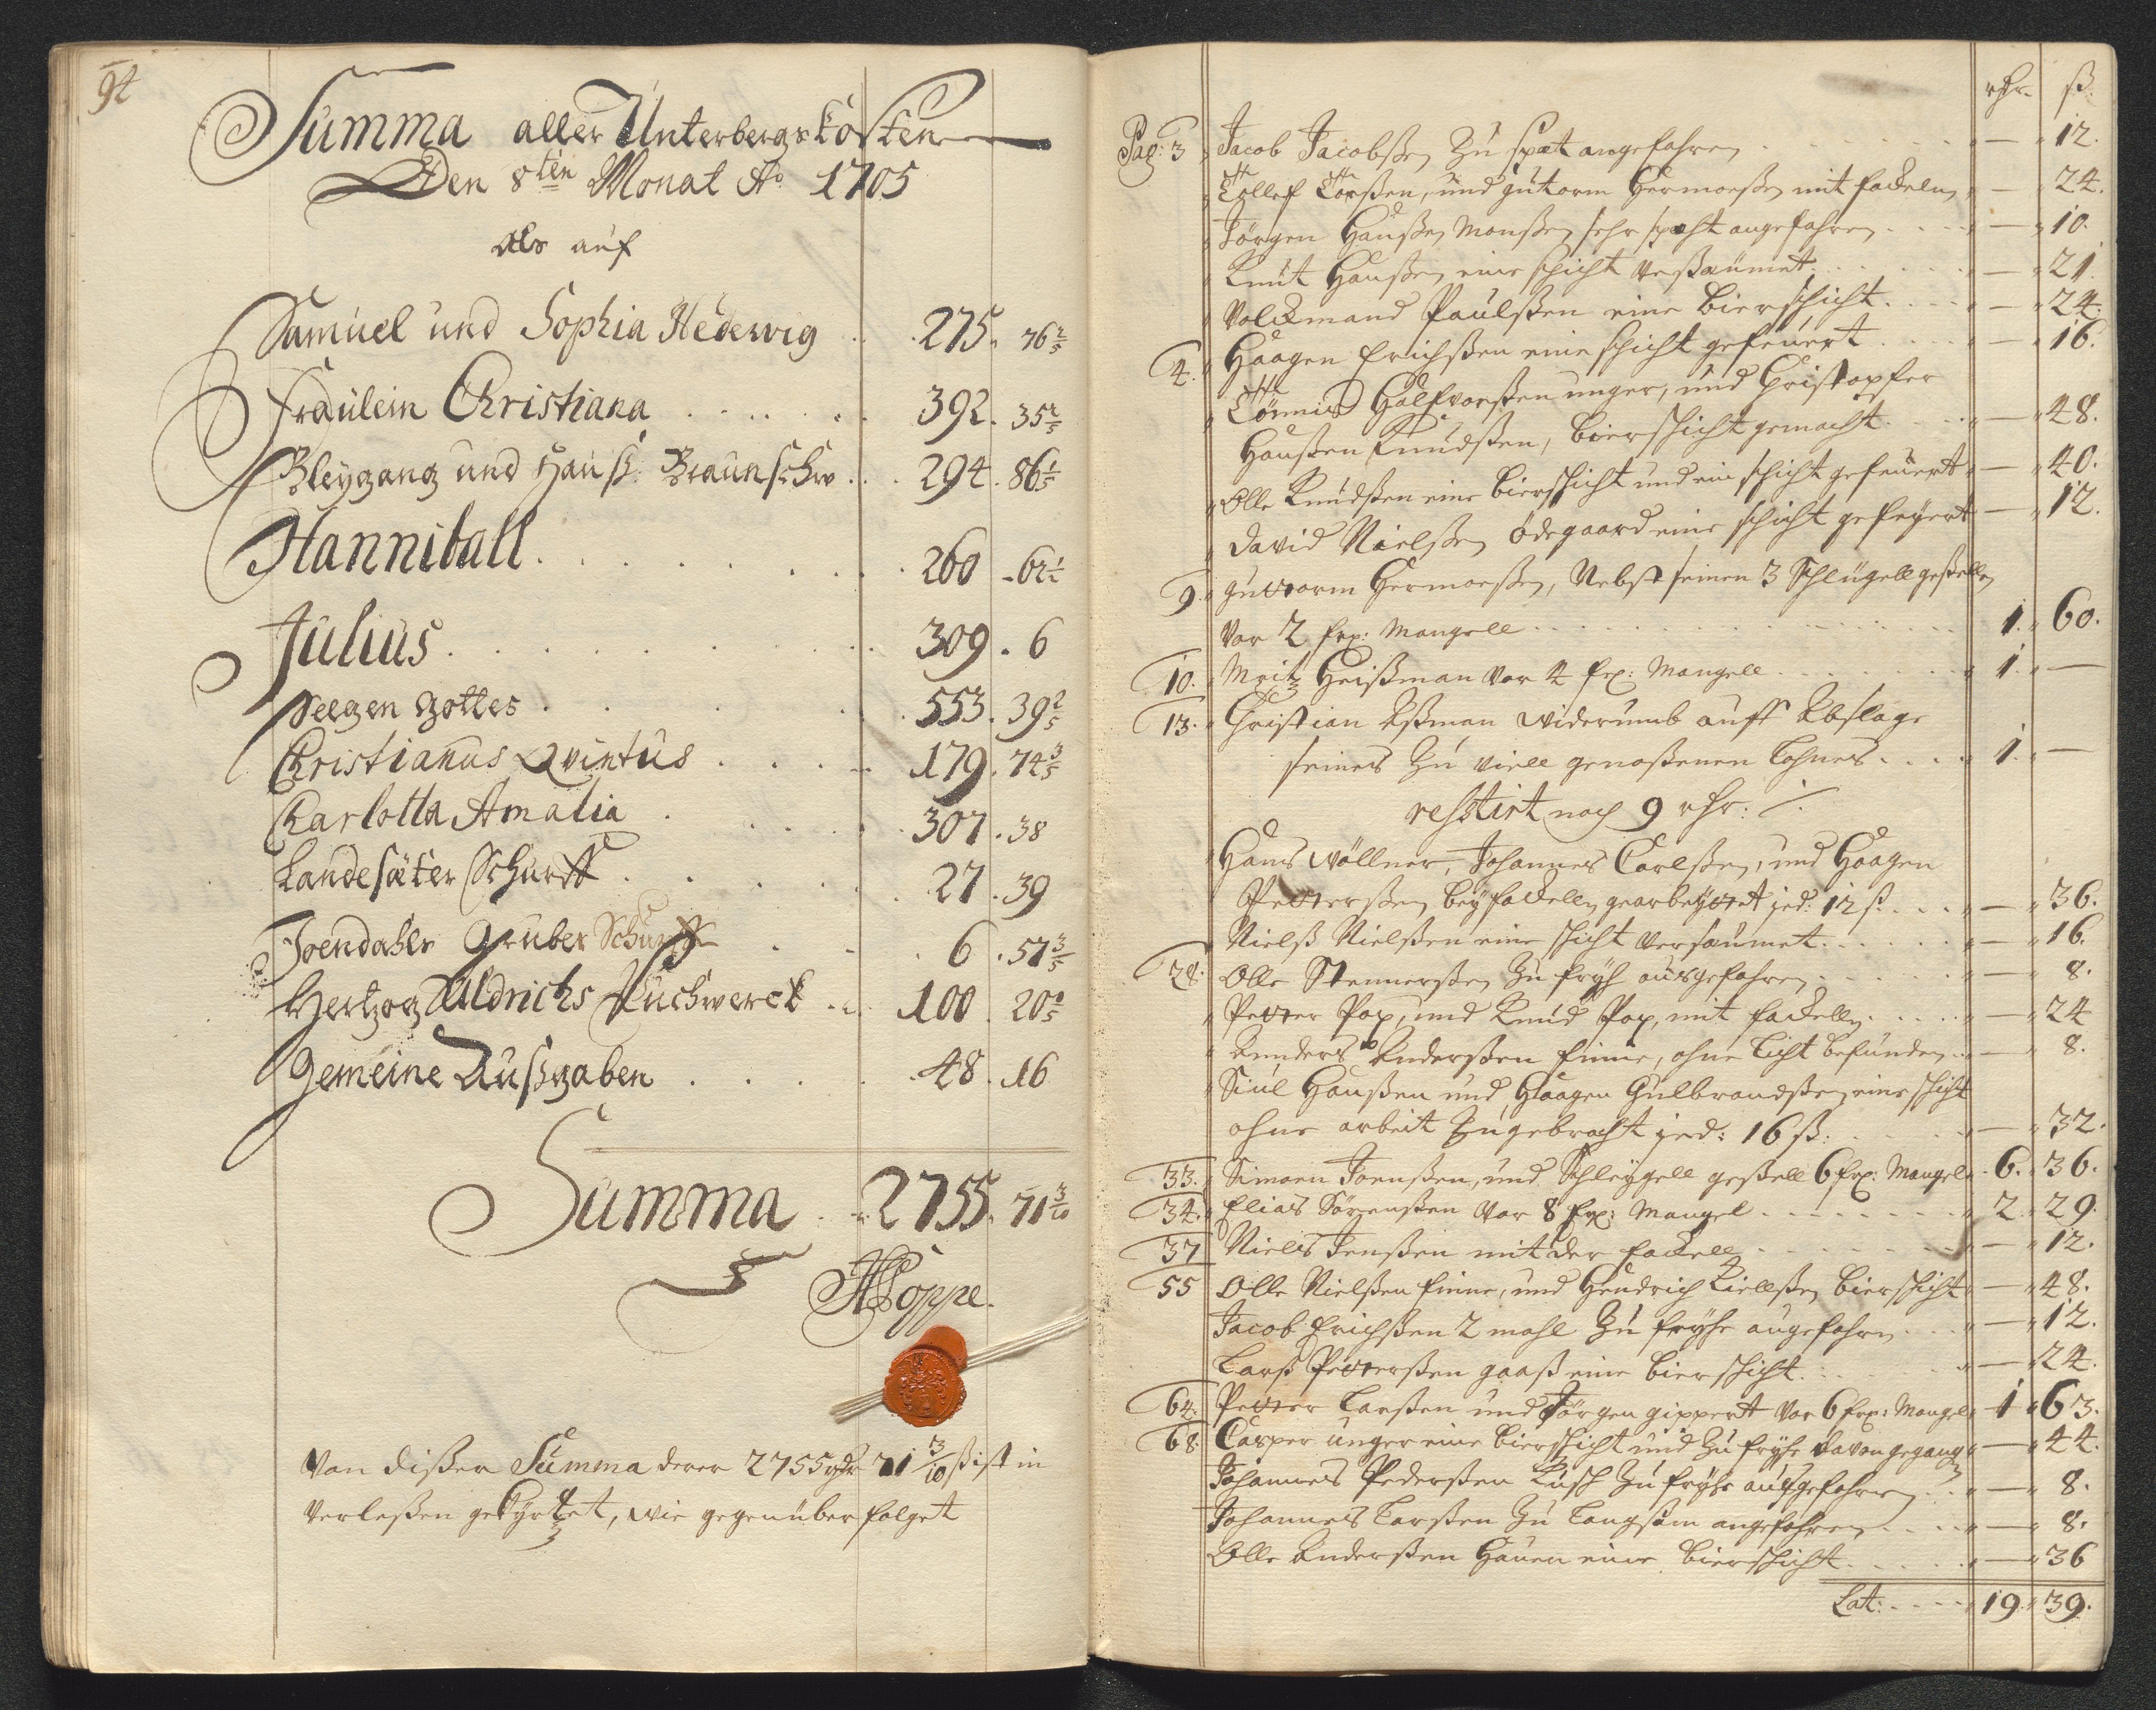 94
Summa aller Unterbergs kosten
Den 8ten Monat Ao 1705
Als auf
Samuel und Sophia Hedewig .. 275. 76 2/5
Fräulein Christiana . . . . . 392. 35 2/5
Bleygang und Hauß Braunschw . . 294. 86 1/5
Hanniball . . . . . . . 260 . 62 1/2
Julius . . . . . . . . . 309 . 6
Seegen Gottes . . . . . 553. 39 2/5
Christianus Qvintus . . . . 179. 74 3/5
Charlotta Amalia . . . . 307. 38
Landesäter Schurff . . . . 27. 39
Joendahls Gruber Schurff . . . 6. 57 3/5
Hertzog Uldrichs Puchwerck . . 100. 20
Gemeine Außgaben . . . . . 48. 16
Summa . . 2755. 71 3/10
HPoppe.
Von dißer Summa derer 2755 rdr 71 3/10 ß ist in
Verleßen gekürtzet, wie gegenüber folget
rdr. ß.
Pag: 3 Jacob Jacobßen Zu spät angefahren . . . — 12.
Tollef Torßen, und Gutorm Hermoeßen mit fackeln — 24.
Jörgen Hanßen Monßen sehr späht angefahren . . . — 10.
Knut Hanßen eine schicht verßäumet . . . — 21.
Volckmand Paulßen eine bierschicht . . . — 24.
4. Haagen Erichßen eine schicht gefeüert . . . — 16.
Tönnis Halfvorßen unger, und Christopfer
Hanßen Knudßen, bierschicht gemacht . . . — 48.
Olle Knudßen eine bierschicht und ein schicht gefeüert — 40.
David Nielßen Ödegaard eine schicht gefeyert — 12.
9. Guttorm Hermoeßen, Nebst seinen 3 Schlügell gesellen
Vor 2 frp: Mangell . . . 1. 60.
10. Moritz Heißman Vor 4 frp: Mangell . . . 1. —
13. Christian Aßman widerumb auff Abslage
seines Zu viell genoßenen Lohnes . . . 1. —
restirt noch 9 rdr: ./.
Hans Wöllner, Johannes Carlßen, und Haagen
Petterßen bey fackelln gearbeytet jed: 12 ß . . . — 36.
Nielß Nielßen eine schicht versäumet . . . — 16.
28. Olle Stennerßen Zu früh ausgefahren . . . — 8.
Petter Pop, und Knud Pop, mit fackelln . . . — 24
Anders Anderßen Finne, ohne licht befunden . . . — 8.
Siul Hanßen und Haagen Gulbrandßen eine schicht
ohne arbeit Zugebracht jed: 16 ß: . . . — 32.
33. Simoen Joenßen, und Schleygell geßell 6 frp: Mangel 6. 36.
34. Elias Sörenßen Vor 8 frp: Mangel . . . 2. 29.
37 Niels Jenßen mit der fackell . . . — 12.
55 Olle Nielßen Finne, und Hendrich Kiellßen bierschicht — 48.
Jacob Erichßen 2 mahl Zu frühe angefahren . . . — 12.
Larß Petterßen Gaaß eine bierschicht . . . — 24.
64. Petter Larßen und Jörgen Gippert Vor 6 frp: Mangel 1 63.
68. Casper Unger eine bierschicht und Zu frühe davongegang — 44.
Johannes Pederßen Kusch Zu frühe ausgefahren . . . — 8.
Johannes Larßen Zu langsam angefahren . . . — 8.
Olle Anderßen Hauen eine bierschicht . . . — 36
Lat: . . . . 19. 39.